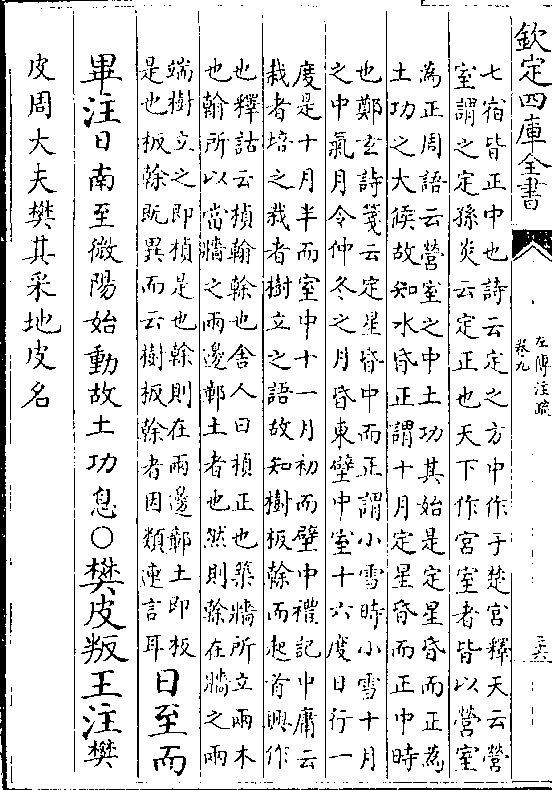 欽定四庫全書
左傳注疏
卷九
七宿皆正中也詩云定之方中作于楚宮釋天云營
室謂之定孫炎云定正也天下作宮室者皆以營室
為正周語云營室之中土功其始是定星昏而正為
土功之大候故知水昏正謂十月定星昏而正中時
也鄭玄詩箋云定星昏中而正謂小雪時小雪十月
之中氣月令仲冬之月昏東壁中室十六度日行一
度是十月半而室中十一月初而壁中禮記中庸云
栽者培之栽者樹立之語故知樹板榦而起首興作
也釋詁云楨翰榦也舍人曰楨正也築牆所立兩木
也翰所以當牆之兩邊鄣土者也然則榦在牆之兩
端樹立之即楨是也榦則在兩邊鄣土即板
是也板榦既異而云樹板榦者因類連言耳
日至而
畢注日南至微陽始動故土功息○樊皮叛王注樊
皮周大夫樊其采地皮名